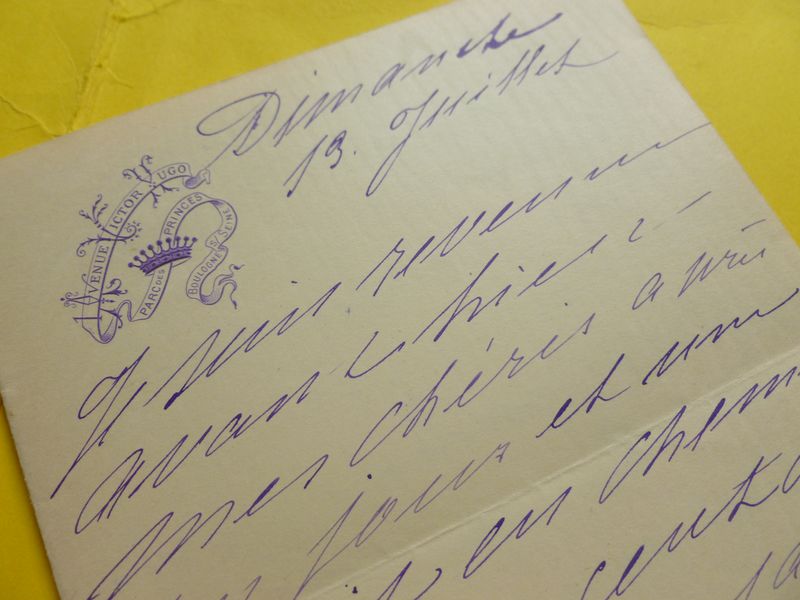 Dimanche
13. Juillet
AVENUE VICTOR HUGO
PARC DES PRINCES
BOULOGNE S/ SEINE
Je suis revenue
avant hier -
mes chéris après
un jour et une
en chem
cent